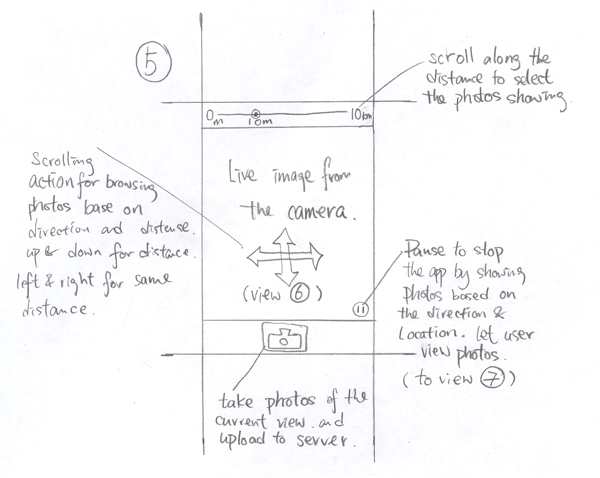 5
scroll along the
distance to select
the photos showing.
0m 10m 10km
Scrolling
action for browsing
photos base on
direction and distense.
up & down for distance.
left & right for same
distance.
Live image from
the camera.
(view 6)
Pause to stop
the app by showing
photos based on
the direction &
Location. let user
view photos.
(to view 7)
take photos of the
current view. and
upload to server.